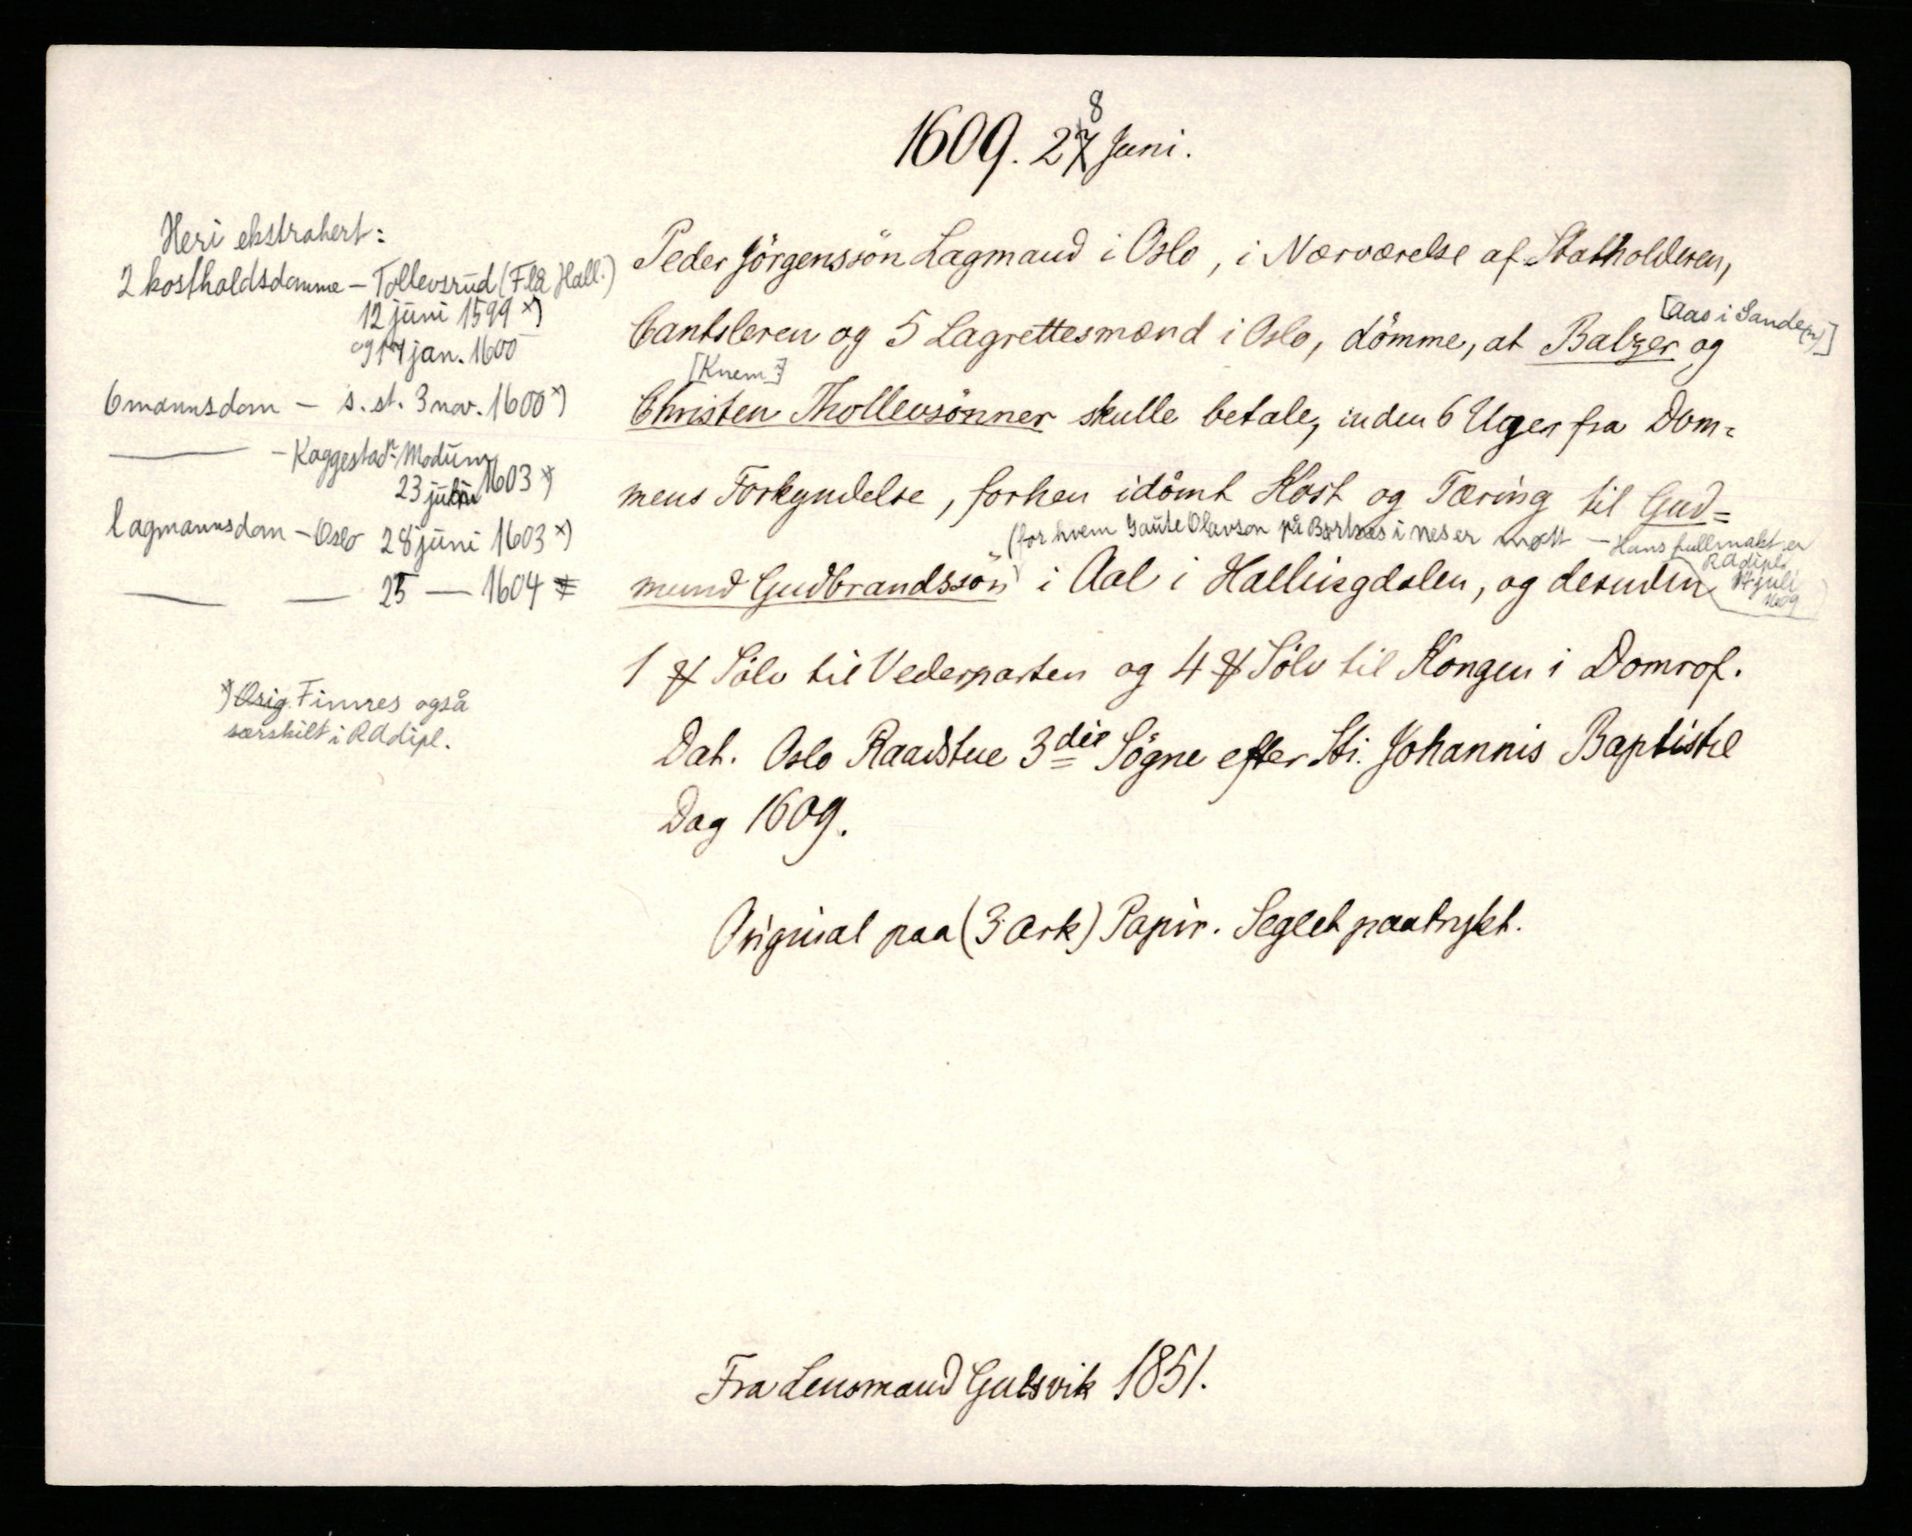 1609. 27 8 Juni.
Heri ekstrahert:
2 kostholdsdomme – Tollevsrud (Flå Hall.)
12 juni 1599 x)
og 17 jan. 1600
6mannsdom – s. st. 3 nov. 1600 x)
– Kaggestad, Modum
23 juni 1603 x)
lagmannsdom – Oslo 28 juni 1603 x)
— — 25 — 1604
x) Orig. Finnes også
særskilt i RAdipl.
Peder Jörgenssön Lagmand i Oslo, i Nærværelse af Statholderen,
[Aas i Sande(?)]
Cantsleren og 5 Lagrettesmænd i Oslo, dömme, at Balzer og
[Knem?]
Christen Thollevsönner skulle betale, inden 6 Uger fra Dom=
mens Forkyndelse, forhen idömt Kost og Tæring til Gud=
(for hvem Gaute Olavson på Børtnes i Nes er møtt – Hans fullmakt er
RAdipl.
14 juli
1609)
mund Gudbrandssön i Aal i Hallingdalen, og desuden
1 ℔ Sölv til Vederparten og 4 ℔ Sölv til Kongen i Domrof.
Dat. Oslo Raadstue 3die Sögne efter Sti. Johannis Baptistæ
Dag 1609.
Original paa (3 Ark) Papir. Seglet paatrykt.
Fra Lensmand Gulsvik 1851.